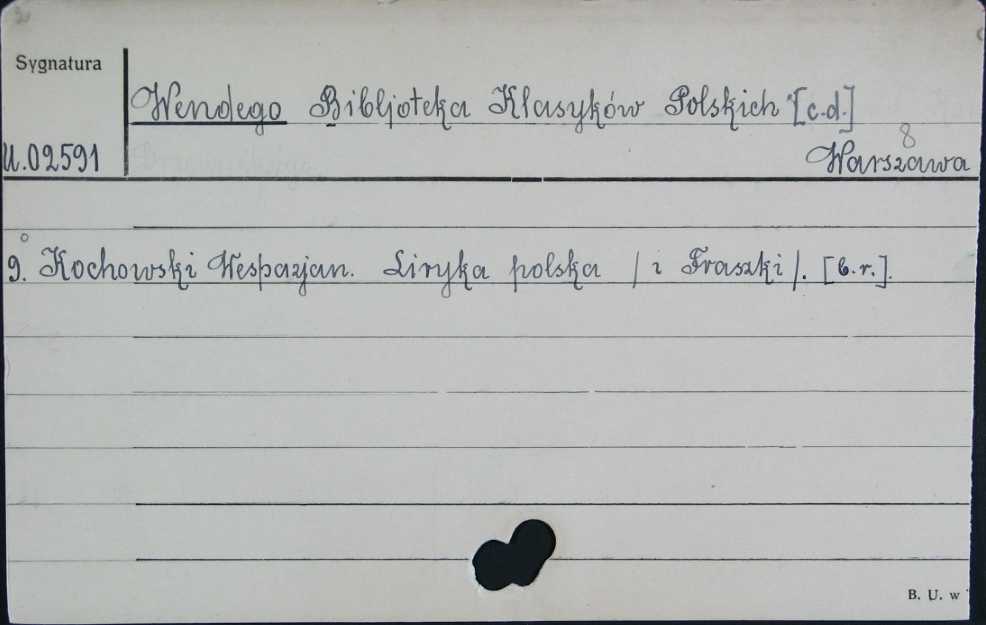 Sygnatura
Wendego Bibljoteka Klasyków Polskich [c.d.]
8
U.02591
Warszawa
9. Kochowski Wespazjan. Liryka polska / i Fraszki /. [b.r.].
B. U. w